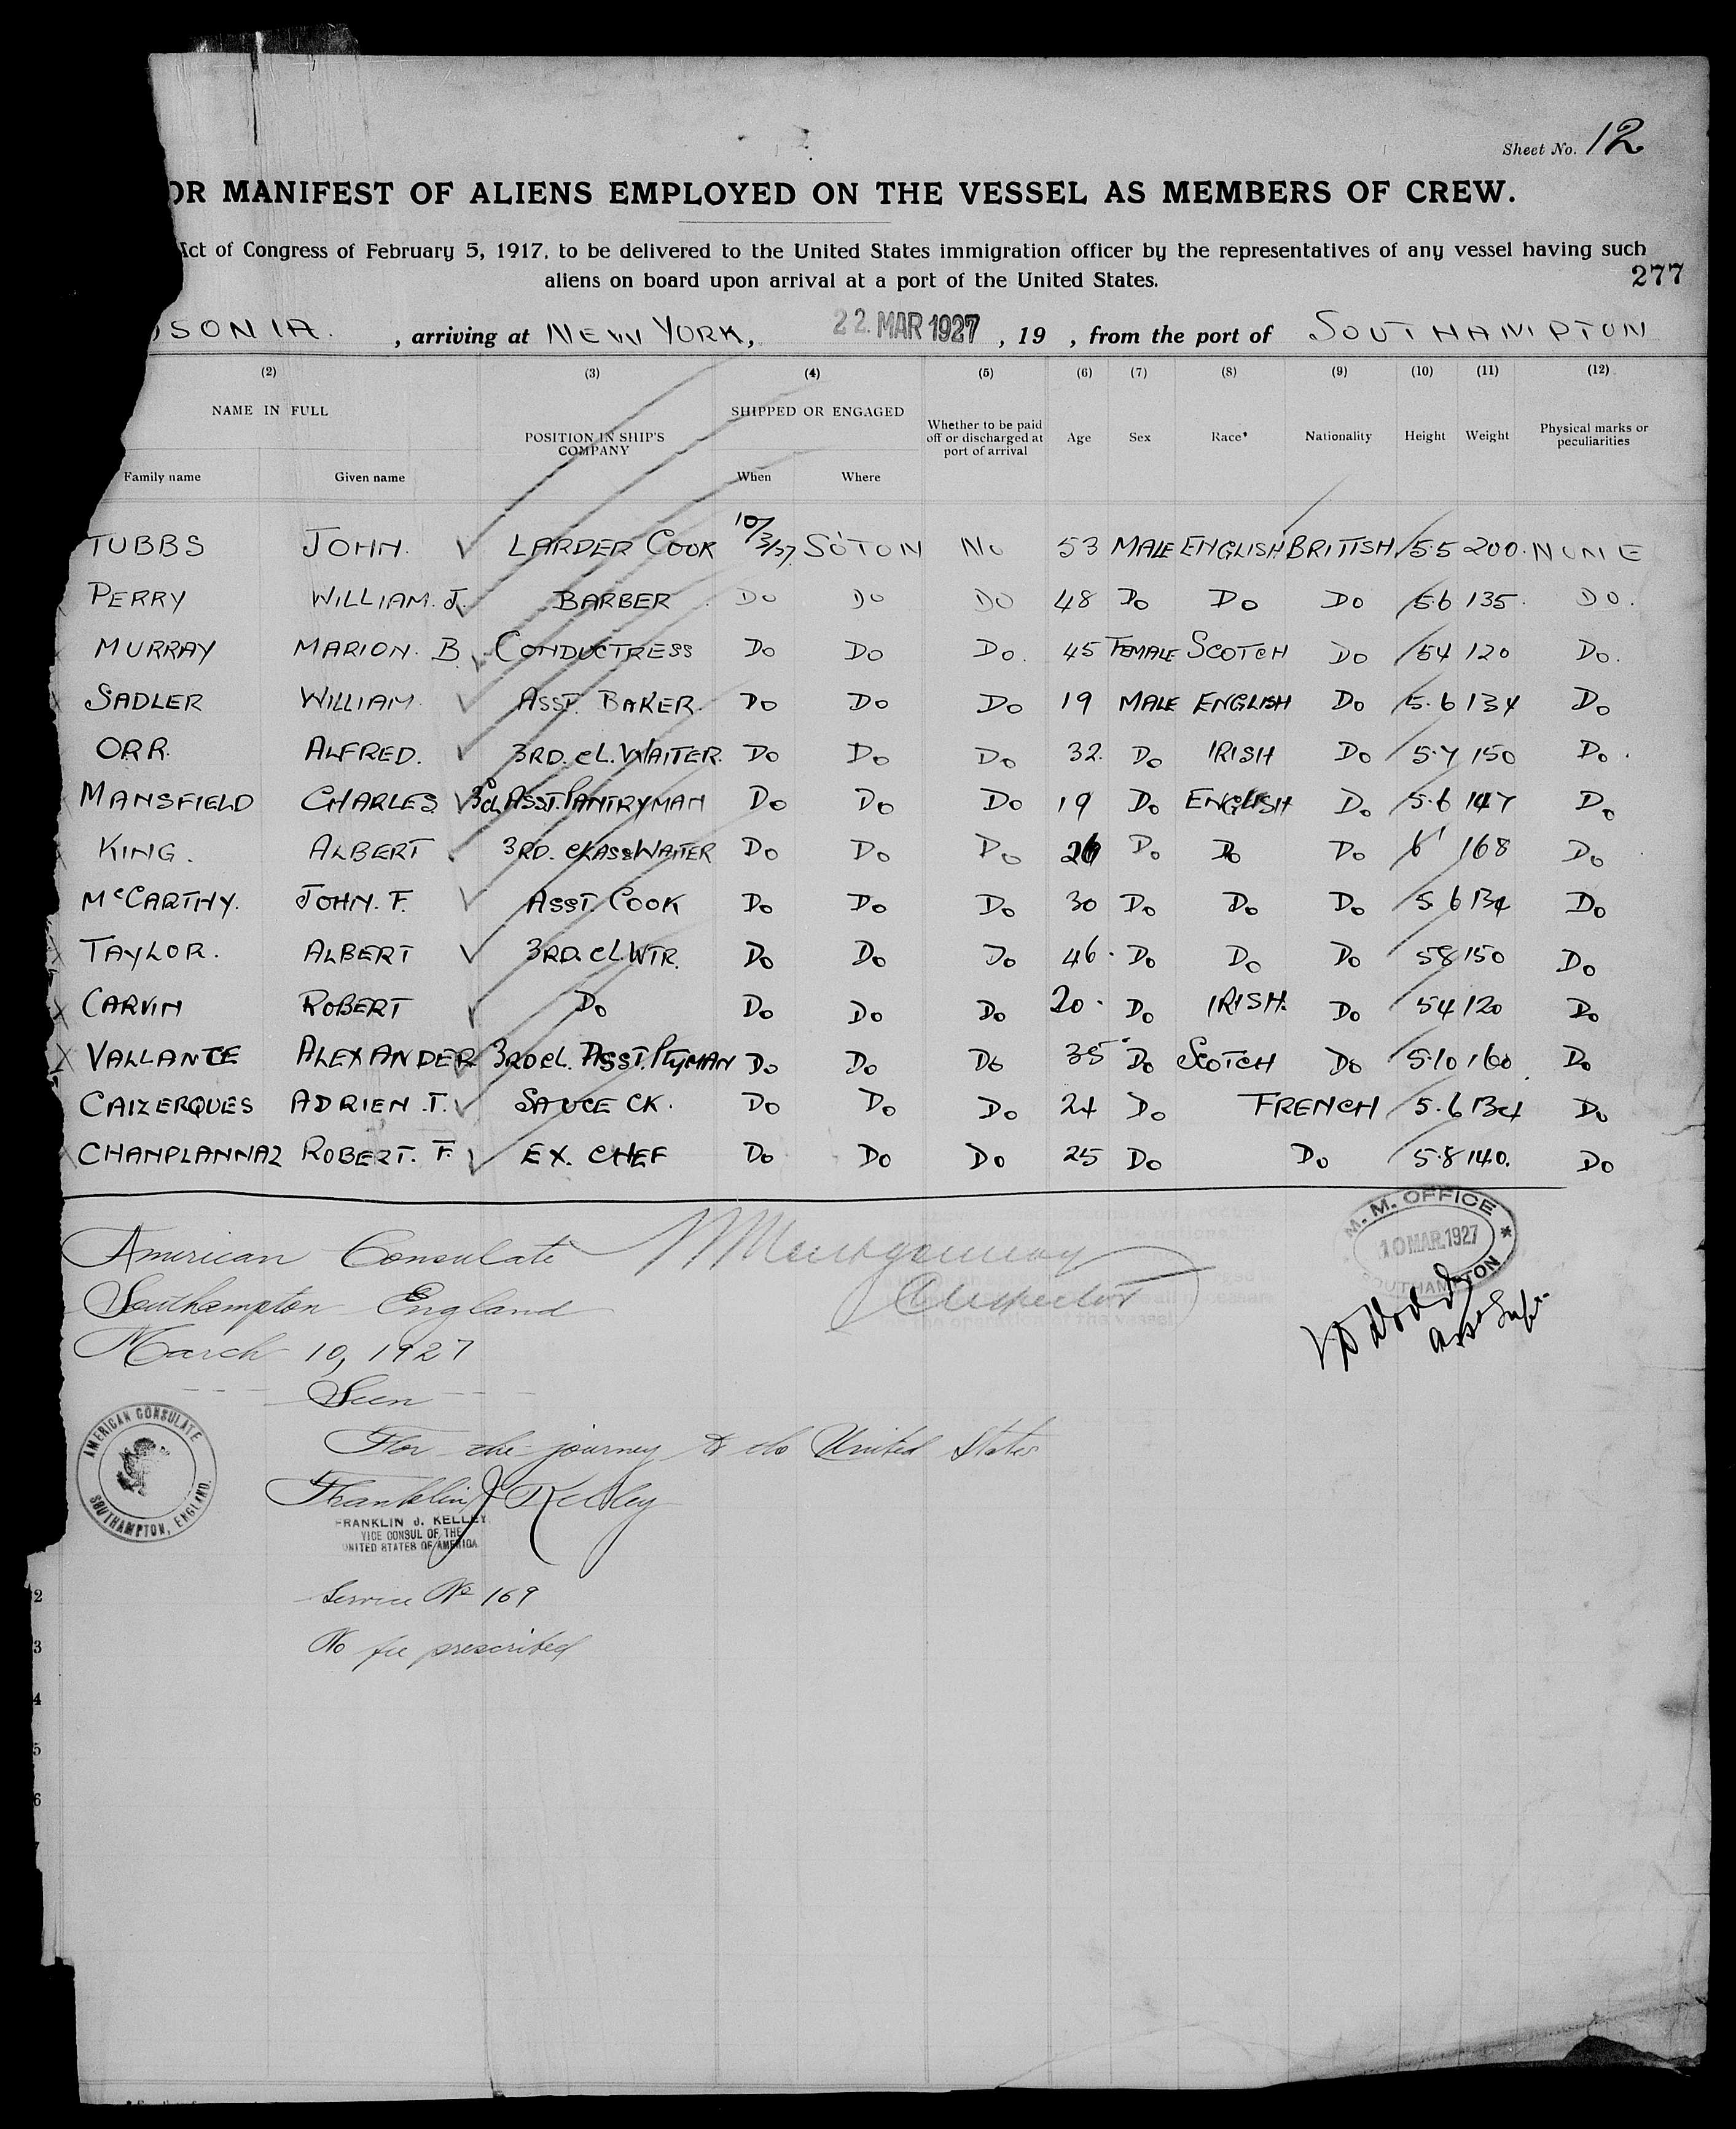 Sheet No. 12
OR MANIFEST OF ALIENS EMPLOYED ON THE VESSEL AS MEMBERS OF CREW.
Act of Congress of February 5, 1917, to be delivered to the United States immigration officer by the representatives of any vessel having such
aliens on board upon arrival at a port of the United States.
277
SONIA. , arriving at NEW YORK, 22 MAR 1927 , 19 , from the port of SOUTHAMPTON
(2) (3) (4) (5) (6) (7) (8) (9) (10) (11) (12)
NAME IN FULL POSITION IN SHIP'S COMPANY SHIPPED OR ENGAGED Whether to be paid off or discharged at port of arrival Age Sex Race* Nationality Height Weight Physical marks or peculiarities
Family name Given name When Where
TUBBS JOHN. LARDER COOK 10/3/27. SO'TON No 53 MALE ENGLISH BRITISH 5.5 200. NONE
PERRY WILLIAM. J. BARBER Do Do Do 48 Do Do Do 5.6 135. Do.
MURRAY MARION. B. CONDUCTRESS Do Do Do. 45 FEMALE SCOTCH Do 54 120 Do.
SADLER WILLIAM. ASST. BAKER. Do Do Do 19 MALE ENGLISH Do 5.6 134 Do
ORR. ALFRED. 3RD. CL. WAITER. Do Do Do 32. Do IRISH Do 5.7 150 Do.
MANSFIELD CHARLES 3CL ASST. PANTRYMAN Do Do Do 19 Do ENGLISH Do 5.6 147 Do
KING. ALBERT 3RD. CLASS WAITER Do Do Do 26 Do Do Do 6' 168 Do
McCARTHY. JOHN. F. ASST. COOK Do Do Do 30 Do Do Do 5 6 134 Do
TAYLOR. ALBERT 3RD. CL. WTR. Do Do Do 46. Do Do Do 58 150 Do
CARVIN ROBERT Do Do Do Do 20. Do IRISH. Do 54 120 Do
VALLANCE ALEXANDER 3RD CL. ASST. PTYMAN Do Do Do 35 Do SCOTCH Do 5.10 160 Do
CAIZERQUES ADRIEN .T. SAUCE CK. Do Do Do 24 Do FRENCH 5.6 134 Do
CHANPLANNAZ ROBERT. F. EX. CHEF Do Do Do 25 Do Do 5.8 140. Do
M. M. OFFICE
10 MAR. 1927
SOUTHAMPTON
American Consulate Montgomery
Southampton England Inspector
March 10, 1927
Seen
AMERICAN CONSULATE
SOUTHAMPTON, ENGLAND.
For the journey to the United States
Franklin J Kelley
FRANKLIN J. KELLEY
VICE CONSUL OF THE
UNITED STATES OF AMERICA
Service No 169
No fee prescribed
2
3
4
5
6